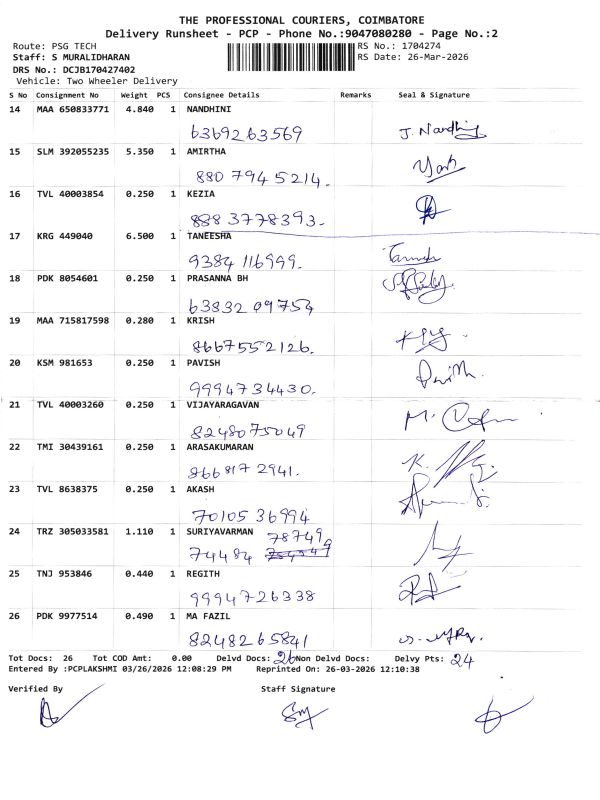 THE PROFESSIONAL COURIERS, COIMBATORE
Delivery Runsheet - PCP - Phone No.:9047080280 - Page No.:2
Route: PSG TECH RS No.: 1704274
Staff: S MURALIDHARAN RS Date: 26-Mar-2026
DRS No.: DCJB170427402
Vehicle: Two Wheeler Delivery
S No Consignment No Weight PCS Consignee Details Remarks Seal & Signature
14 MAA 650833771 4.840 1 NANDHINI
6369263569 J. Nandhini
15 SLM 392055235 5.350 1 AMIRTHA
880 794 5214.
16 TVL 40003854 0.250 1 KEZIA
888 3778393.
17 KRG 449040 6.500 1 TANEESHA
9384 116999.
18 PDK 8054601 0.250 1 PRASANNA BH
63832 09754
19 MAA 715817598 0.280 1 KRISH
8667552126.
20 KSM 981653 0.250 1 PAVISH
9994734430.
21 TVL 40003260 0.250 1 VIJAYARAGAVAN
8248075049
22 TMI 30439161 0.250 1 ARASAKUMARAN
866817 2941.
23 TVL 8638375 0.250 1 AKASH
70105 36994
24 TRZ 305033581 1.110 1 SURIYAVARMAN 78749
74484
25 TNJ 953846 0.440 1 REGITH
9994726338
26 PDK 9977514 0.490 1 MA FAZIL
8248265841
Tot Docs: 26 Tot COD Amt: 0.00 Delvd Docs: 26 Non Delvd Docs: Delvy Pts: 24
Entered By :PCPLAKSHMI 03/26/2026 12:08:29 PM Reprinted On: 26-03-2026 12:10:38
Verified By Staff Signature